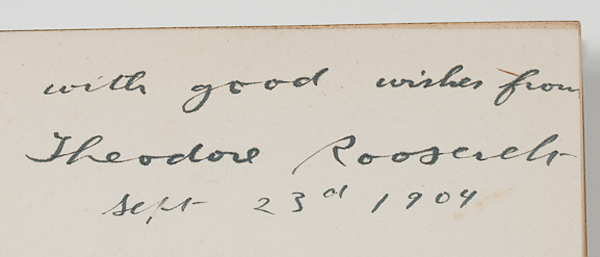 with good wishes from
Theodore Roosevelt
Sept 23d 1904